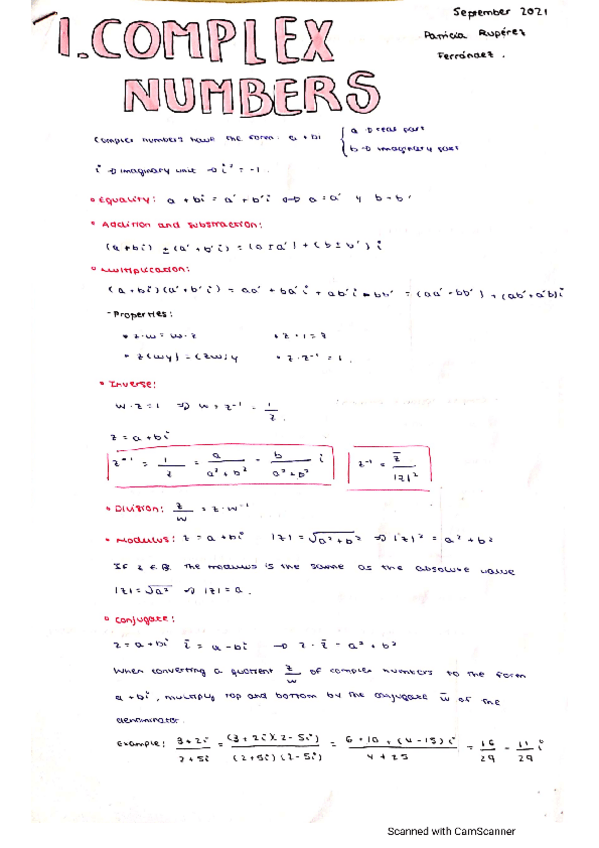 September 2021
Patricia Rupérez
Ferrández.
1. COMPLEX
NUMBERS
Complex numbers have the form: a + bi { a → real part
b → imaginary part
i → imaginary unit → i² = -1.
• Equality: a + bi = a' + b'i ⇔ a = a' y b = b'
• Addition and substraction:
(a + bi) ± (a' + b'i) = (a ± a') + (b ± b') i
• Multiplication:
(a + bi)(a' + b'i) = aa' + ba'i + ab'i - bb' = (aa' - bb') + (ab' + a'b)i
- Properties:
• z · w = w · z • z · 1 = z
• z(wy) = (zw)y • z · z⁻¹ = 1.
• Inverse:
w · z = 1 ⇒ w = z⁻¹ = 1/z.
z = a + bi
z⁻¹ = 1/z = a/(a² + b²) - b/(a² + b²) i z⁻¹ = z̄/|z|²
• Division: z/w = z · w⁻¹
• Modulus: z = a + bi |z| = √(a² + b²) ⇒ |z|² = a² + b²
If z ∈ ℝ the modulus is the same as the absolute value
|z| = √a² ⇒ |z| = a.
• Conjugate:
z = a + bi z̄ = a - bi → z · z̄ = a² + b²
When converting a quotient z/w of complex numbers to the form
a + bi, multiply top and bottom by the conjugate w̄ of the
denominator.
Example: (3 + 2i)/(2 + 5i) = (3 + 2i)(2 - 5i)/(2 + 5i)(2 - 5i) = (6 + 10 + (4 - 15)i)/(4 + 25) = 16/29 - 11/29 i
Scanned with CamScanner